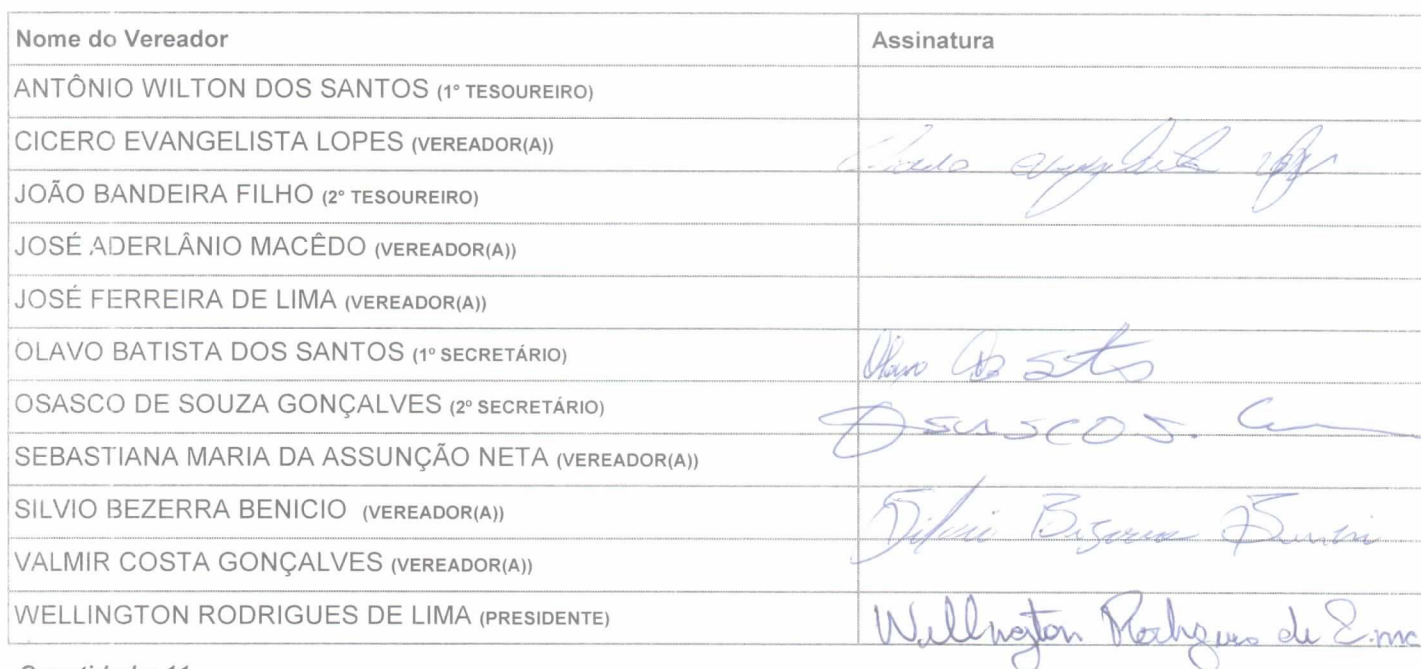 Nome do Vereador Assinatura
ANTÔNIO WILTON DOS SANTOS (1º TESOUREIRO)
CICERO EVANGELISTA LOPES (VEREADOR(A))
JOÃO BANDEIRA FILHO (2º TESOUREIRO)
JOSÉ ADERLÂNIO MACÊDO (VEREADOR(A))
JOSÉ FERREIRA DE LIMA (VEREADOR(A))
OLAVO BATISTA DOS SANTOS (1º SECRETÁRIO)
OSASCO DE SOUZA GONÇALVES (2º SECRETÁRIO) Osasco S.
SEBASTIANA MARIA DA ASSUNÇÃO NETA (VEREADOR(A))
SILVIO BEZERRA BENICIO (VEREADOR(A)) Silvio
VALMIR COSTA GONÇALVES (VEREADOR(A))
WELLINGTON RODRIGUES DE LIMA (PRESIDENTE) Wellington Rodrigues de Lima